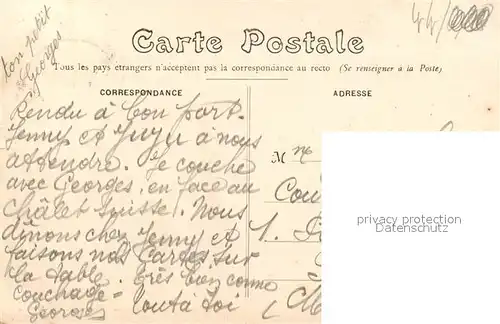 ton petit
Georges
44/
Carte Postale
Tous les pays étrangers n'acceptent pas la correspondance au recto (Se renseigner à la Poste)
CORRESPONDANCE
ADRESSE
Rendu à bon port.
Jenny et Juju à nous
attendre. Je couche
avec Georges, en face au
Châlet Suisse. Nous
dînons chez Jenny et
faisons nos Cartes sur
la table. Très bien comme
couchage =
Georges tout à toi
M me
Cou
1.
(M
privacy protection
COLLECTIONS